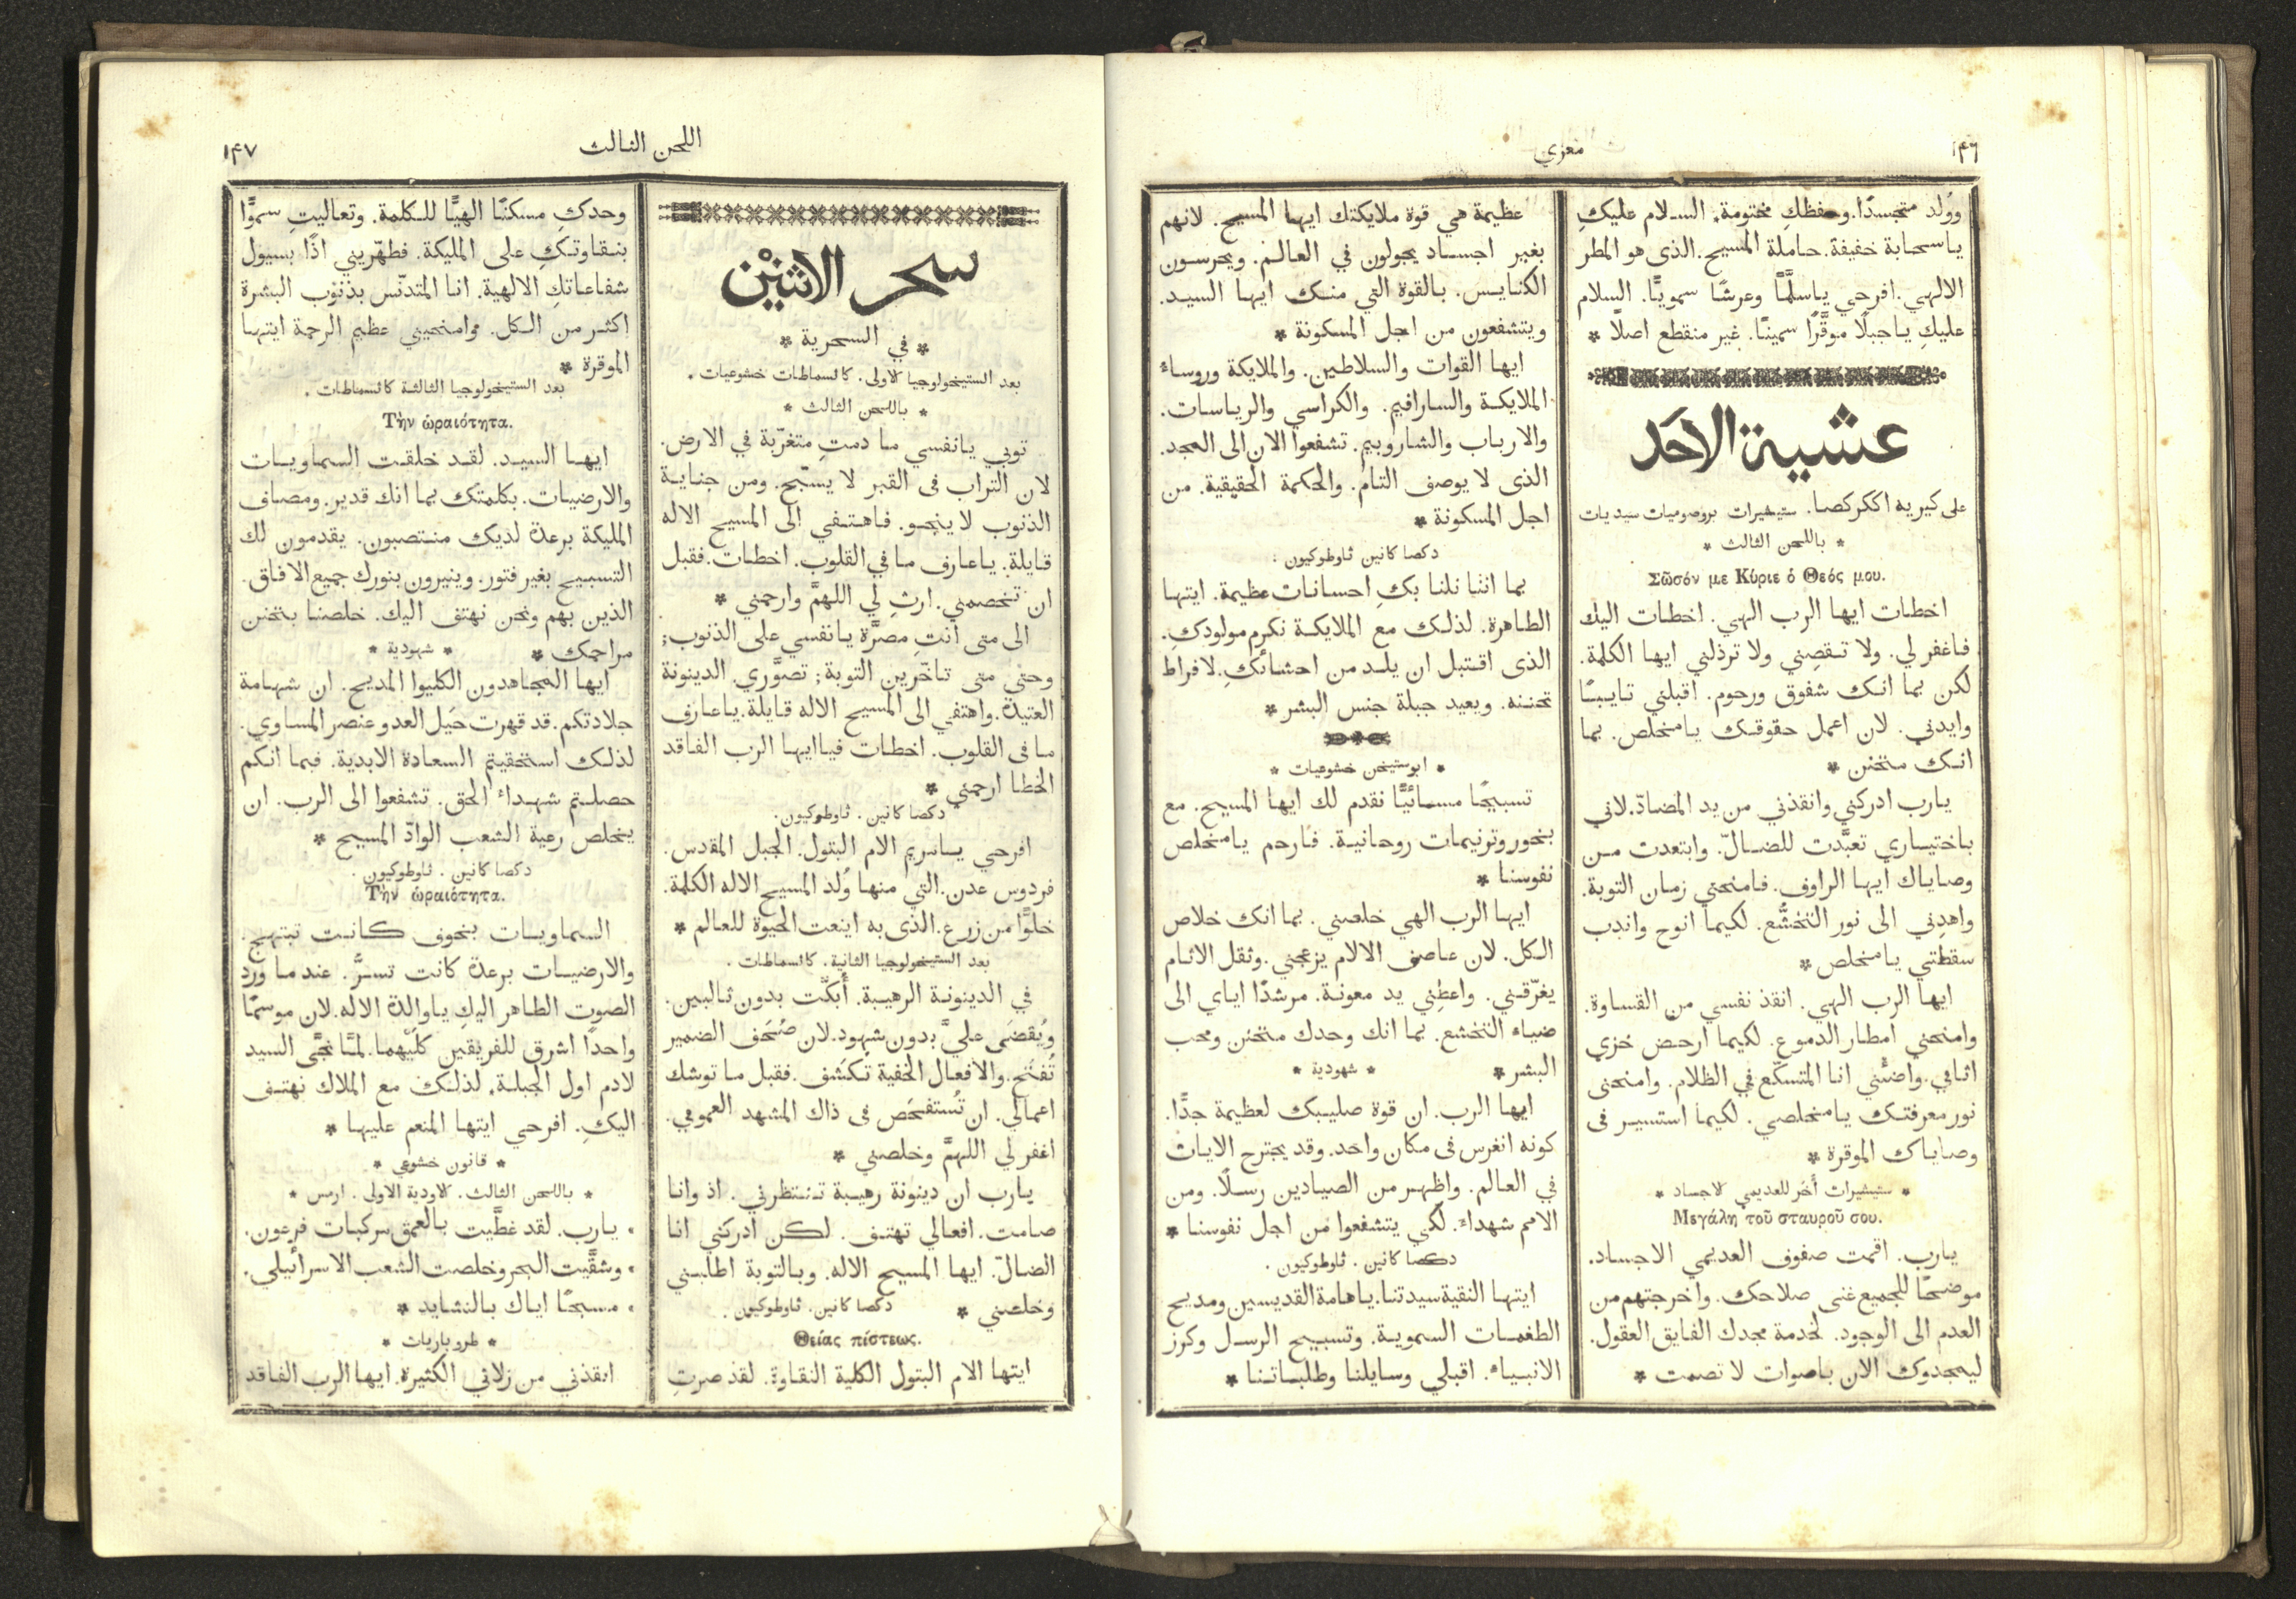 ١٤٦
معزي
وولد متجسدًا. وحفظكِ مختومة. السلام عليكِ
ياسحابة خفيفة. حاملة المسيح. الذى هو المطر
الالهي. افرحي ياسلَّمًا وعرشًا سمويًّا. السلام
عليكِ ياجبلًا موقَّرًا سمينًا. غير منقطع اصلًا *
عشية الاحَد
على كيريه اككركصا. ستيشيرات بروصوميات سيديات
* باللحن الثالث *
Σῶσόν με Κύριε ὁ Θεός μου.
اخطات ايها الرب الهي. اخطات اليك
فاغفر لي. ولا تقصِني ولا ترذلني ايها الكلمة.
لكن بما انك شفوق ورحوم. اقبلني تايبًا
وايدني. لان اعمل حقوقك يا مخلص. بما
انك متحنن *
يارب ادركني وانقذني من يد المضادّ. لاني
باختياري تعبَّدت للضالّ. وابتعدت من
وصاياك ايها الراوف. فامنحني زمان التوبة.
واهدِني الى نور التخشُّع. لكيما انوح واندب
سقطتي يامخلص *
ايها الرب الهي. انقذ نفسي من القساوة.
وامنحني امطار الدموع. لكيما ارحض خزي
اثامي. واضئني انا المتسكّع في الظلام. وامنحنى
نور معرفتك يامخلصي. لكيما استسير فى
وصاياك الموقرة *
* ستيشيرات أُخَر للعديمي الاجساد *
Μεγάλη τοῦ σταυροῦ σου.
يارب. اقمت صفوف العديمي الاجساد.
موضحًا للجميع غنى صلاحك. واخرجتهم من
العدم الى الوجود. لخدمة مجدك الفايق العقول.
ليمجدوك الان باصوات لا تصمت *
عظيمة هي قوة ملايكتك ايها المسيح. لانهم
بغير اجساد يجولون في العالم. ويحرسون
الكنايس. بالقوة التي منك ايها السيد.
ويتشفعون من اجل المسكونة *
ايها القوات والسلاطين. والملايكة وروساء
الملايكة والسارافيم. والكراسي والرياسات.
والارباب والشاروبيم. تشفعوا الان الى المجد.
الذى لا يوصف التام. والحكمة الحقيقية. من
اجل المسكونة *
دكصا كانين ثاوطوكيون :
بما اننا نلنا بكِ احسانات عظيمة. ايتها
الطاهرة. لذلك مع الملايكة نكرم مولودكِ.
الذى اقتبل ان يلد من احشائكِ. لافراط
تحننه. ويعيد جبلة جنس البشر *
* ابوستيخن خشوعيات *
تسبيحًا مسائيًّا نقدم لك ايها المسيح. مع
بخور وترنيمات روحانية. فارحم يامخلص
نفوسنا *
ايها الرب الهي خلصني. بما انك خلاص
الكل. لان عاصف الالام يزعجني. وثقل الاثام
يغرّقني. واعطِني يد معونة. مرشدًا اياي الى
ضياء التخشع. بما انك وحدك متحنن ومحب
البشر * * شهودية *
ايها الرب. ان قوة صليبك لعظيمة جدًّا.
كونه انغرس فى مكان واحد. وقد يجترح الايات
في العالم. واظهر من الصيادين رسلًا. ومن
الامم شهداء. لكي يتشفعوا من اجل نفوسنا *
دكصا كانين. ثاوطوكيون.
ايتها النقية سيدتنا. ياهامة القديسين ومديح
الطغمات السموية. وتسبيح الرسل وكرز
الانبياء. اقبلي وسايلنا وطلباتنا *
اللحن الثالث
١٤٧
سحر الاثنَيْن
* في السحرية *
بعد الستيخولوجيا الاولى. كاتسماطات خشوعيات.
* باللحن الثالث *
توبي يانفسي ما دمتِ متغرّبة في الارض.
لان التراب فى القبر لا يسبّح. ومن جناية
الذنوب لا ينجو. فاهتفي الى المسيح الاله
قايلة. ياعارف ما في القلوب. اخطات. فقبل
ان تخصمني. ارثِ لي اللهمَّ وارحمني *
الى متى انتِ مصرَّة يانفسي على الذنوب;
وحتى متى تاخّرين التوبة; تصوَّري الدينونة
العتيدة. واهتفي الى المسيح الاله قايلة. ياعارف
ما فى القلوب. اخطات فيا ايها الرب الفاقد
الخطا ارحمني *
دكصا كانين. ثاوطوكيون.
افرحي يامريم الام البتول. الجبل المقدس.
فردوس عدن. التي منها وُلد المسيح الاله الكلمة.
خلوًا من زرع. الذى به اينعت الحيوة للعالم *
بعد الستيخولوجيا الثانية. كاتسماطات.
في الدينونة الرهيبة. أُبكَّت بدون ثالبين.
ويُقضَى عليَّ بدون شهود. لان صُحَف الضمير
تُفتَح. والافعال الخفية تكشَف. فقبل ما توشك
اعمالي. ان تُستفحَص فى ذاك المشهد العمومي.
اغفر لي اللهمَّ وخلصني *
يارب ان دينونة رهيبة تنتظرني. اذ وانا
صامت. افعالي تهتف. لكن ادركني انا
الضالّ. ايها المسيح الاله. وبالتوبة اطلبني
وخلصني * دكصا كانين. ثاوطوكيون.
Θείας πίστεως.
ايتها الام البتول الكلية النقاوة. لقد صرتِ
وحدكِ مسكنًا الهيًّا للكلمة. وتعاليتِ سموًّا
بنقاوتكِ على المليكة. فطهّريني اذًا بسيول
شفاعاتكِ الالهية. انا المتدنّس بذنوب البشرة
اكثر من الكل. وامنحيني عظيم الرحمة ايتها
الموقرة *
بعد الستيخولوجيا الثالثة كاتسماطات.
Τὴν ὡραιότητα.
ايها السيد. لقد خلقت السماويات
والارضيات. بكلمتك بما انك قدير. ومصاف
المليكة برعدة لديك منتصبون. يقدمون لك
التسبيح بغير فتور. وينيرون بنورك جميع الافاق.
الذين بهم ونحن نهتف اليك. خلصنا بتحنن
مراحمك * * شهودية *
ايها المجاهدون الكليوا المديح. ان شهامة
جلادتكم. قد قهرت حَيل العدو عنصر المساوي.
لذلك استحقيتم السعادة الابدية. فبما انكم
حصلتم شهداء الحق. تشفعوا الى الرب. ان
يخلص رعية الشعب الوادّ المسيح *
دكصا كانين. ثاوطوكيون.
Τὴν ὡραιότητα.
السماويات بخوف كانت تبتهج.
والارضيات برعدة كانت تسرَّ. عند ما ورد
الصوت الطاهر اليكِ ياوالدة الاله. لان موسمًا
واحدًا اشرق للفريقين كلَيْهما. لمَّا نجَّى السيد
لادم اول الجبلة. لذلك مع الملاك نهتف
اليكِ. افرحي ايتها المنعم عليها *
* قانون خشوعي *
* باللحن الثالث. الاودية الاولى. ارمس *
يارب. لقد غطَّيت بالعمق مركبات فرعون.
وشقَّيت البحر وخلصت الشعب الاسرائيلي.
مسبحًا اياك بالنشايد *
* طروباريات *
انقذني من زلاتي الكثيرة. ايها الرب الفاقد